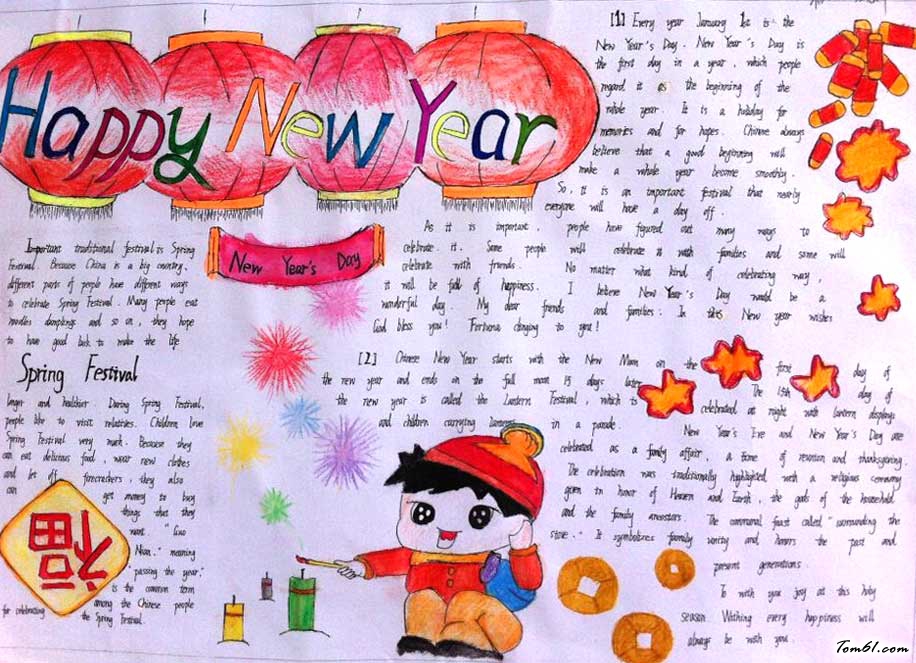 Happy New Year
[1] Every year January 1st is the
New Year's Day. New Year's Day is
the first day in a year, which people
regard it as the beginning of the
whole year. It is a holiday for
memories and for hopes. Chinese always
believe that a good beginning will
make a whole year become smoothly.
So, it is an important festival that nearly
everyone will have a day off.
As it is important, people have figured out many ways to
celebrate it. Some people will celebrate it with families and some will
celebrate with friends. No matter what kind of celebrating way,
it will be full of happiness. I believe New Year's Day would be a
wonderful day. My dear friends and families. In this New year wishes
God bless you! Fortuna clinging to you!
New Year's Day
Important traditional festival is Spring
Festival. Because China is a big country,
different parts of people have different ways
to celebrate Spring Festival. Many people eat
noodles dumplings and so on, they hope
to have good luck to make the life
Spring Festival
longer and healthier. During Spring Festival,
people like to visit relatives. Children love
Spring Festival very much. Because they
can eat delicious food wear new clothes
and let off firecrackers, they also
can get money to buy
things that they
want. "Guo
Nian." meaning
"passing the year."
is the common term
among the Chinese people
for celebrating the Spring Festival.
福
[2] Chinese New Year starts with the New Moon on the first day of
the new year and ends on the full moon 15 days later. The 15th day of
the new year is called the Lantern Festival, which is celebrated at night with lantern displays
and children carrying lanterns in a parade.
New Year's Eve and New Year's Day are
celebrated as a family affair, a time of reunion and thanksgiving.
The celebration was traditionally highlighted with a religious ceremony
given in honor of Heaven and Earth, the gods of the household
and the family ancestors. The communal feast called "surrounding the
stove." It symbolizes family unity and honors the past and
present generations.
To wish you joy at this holy
season. Wishing every happiness will
always be with you.
Tom61.com